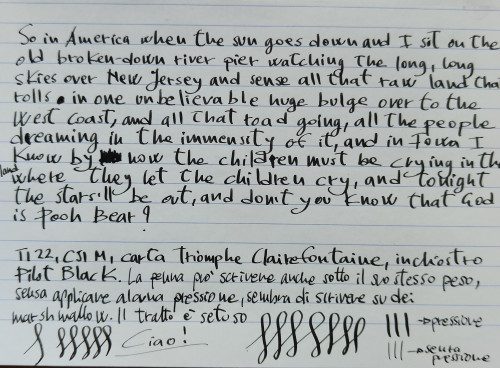 So in America when the sun goes down and I sit on the
old broken-down river pier watching the long, long
skies over New Jersey and sense all that raw land tha
rolls in one unbelievable huge bulge over to the
West Coast, and all that road going, all the people
dreaming in the immensity of it, and in Iowa I
know by now the children must be crying in the
land where they let the children cry, and tonight
the stars'll be out, and don't you know that God
is Pooh Bear?
TI 22, CSI M, carta Triomphe Clairefontaine, inchiostro
Pilot Black. La penna può scrivere anche sotto il suo stesso peso,
senza applicare alcuna pressione, sembra di scrivere su dei
marshmallow. Il tratto è setoso
Ciao!
→ pressione
→ senza pressione